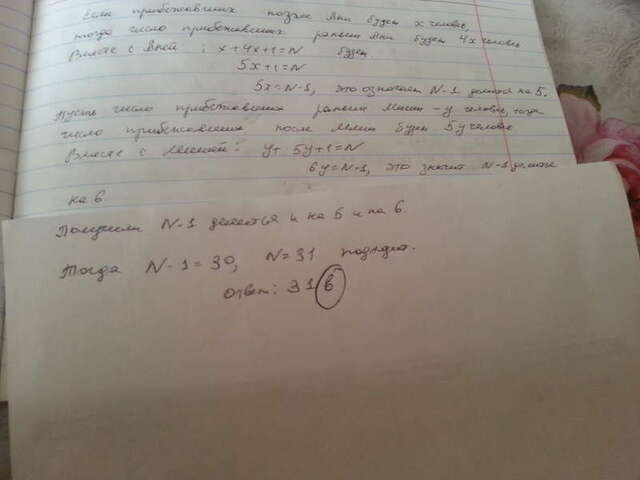 Если прибежавших позже Ани будет x человек,
тогда число прибежавших раньше Ани будет 4x человек
Вместе с Аней : x+4x+1=N будет.
5x+1=N
5x=N-1, это означает N-1 делится на 5.
Пусть число прибежавших раньше Миши - y человек, тогда
число прибежавших после Миши будет 5y человек
Вместе с Мишей: y+5y+1=N
6y=N-1, это значит N-1 делится
на 6.
Получили N-1 делится и на 5 и на 6.
Тогда N-1=30, N=31 подходит.
Ответ: 31 в